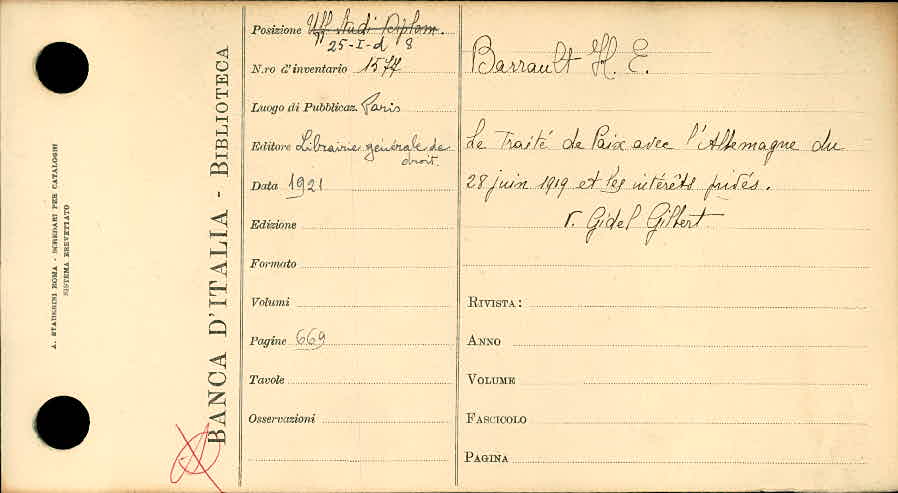 A. STADERINI ROMA - SCHEDARI PER CATALOGHI
SISTEMA BREVETTATO
BANCA D'ITALIA - BIBLIOTECA
Posizione Uff Studi Diplom.
25-I-d 8
N.ro d'inventario 1577
Luogo di Pubblicaz. Paris
Editore Librairie générale de
droit.
Data 1921
Edizione
Formato
Volumi
Pagine 669
Tavole
Osservazioni
Barrault H. E.
Le Traité de Paix avec l'Allemagne du
28 juin 1919 et les intérêts privés.
v. Gidel Gilbert
RIVISTA:
ANNO
VOLUME
FASCICOLO
PAGINA